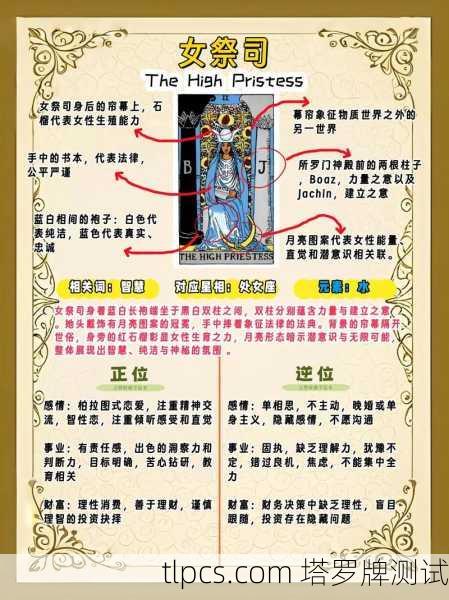 女祭司
The High Pristess
女祭司身后的帘幕上，石
榴代表女性生殖能力
幕帘象征物质世界之外的
另一世界
手中的书本，代表法律，
公平严谨
所罗门神殿前的两根柱子
，Boaz，力量之意以及
Jachin，建立之意
蓝白相间的袍子：白色代
表纯洁，蓝色代表真实、
忠诚
月亮图案代表女性能量、
直觉和潜意识相关联。
II
B
J
THE HIGH PRIESTESS
相关词：智慧
对应星相：处女座
元素：水
女祭司身着蓝白长袍端坐于黑白双柱之间，双柱分别蕴含力量与建立之意
。她头戴饰有月亮图案的冠冕，手中捧着象征法律的法典。背景的帘幕隔开
世俗，身旁的红石榴彰显女性生育之力，月亮形态暗示潜意识与无限可能，
整体展现出智慧、纯洁与神秘的氛围 。
正位
逆位
感情：柏拉图式恋爱，注重精神交
流，智性恋，注重倾听感受和直觉
感情：单相思，不主动，晚婚或单
身主义，隐藏感情，不愿沟通
事业：有责任感，出色的洞察力和
判断力，目标明确，苦心钻研，教
育相关
事业：固执，缺乏理解力，犹豫不
定，错过良机，焦虑，不能集中全
力
财富：理性消费，善于理财，谨慎
理智的投资抉择
财富：财务决策中缺乏理性，盲目
跟随，投资存在隐藏问题
tlpcs.com 塔罗牌测试